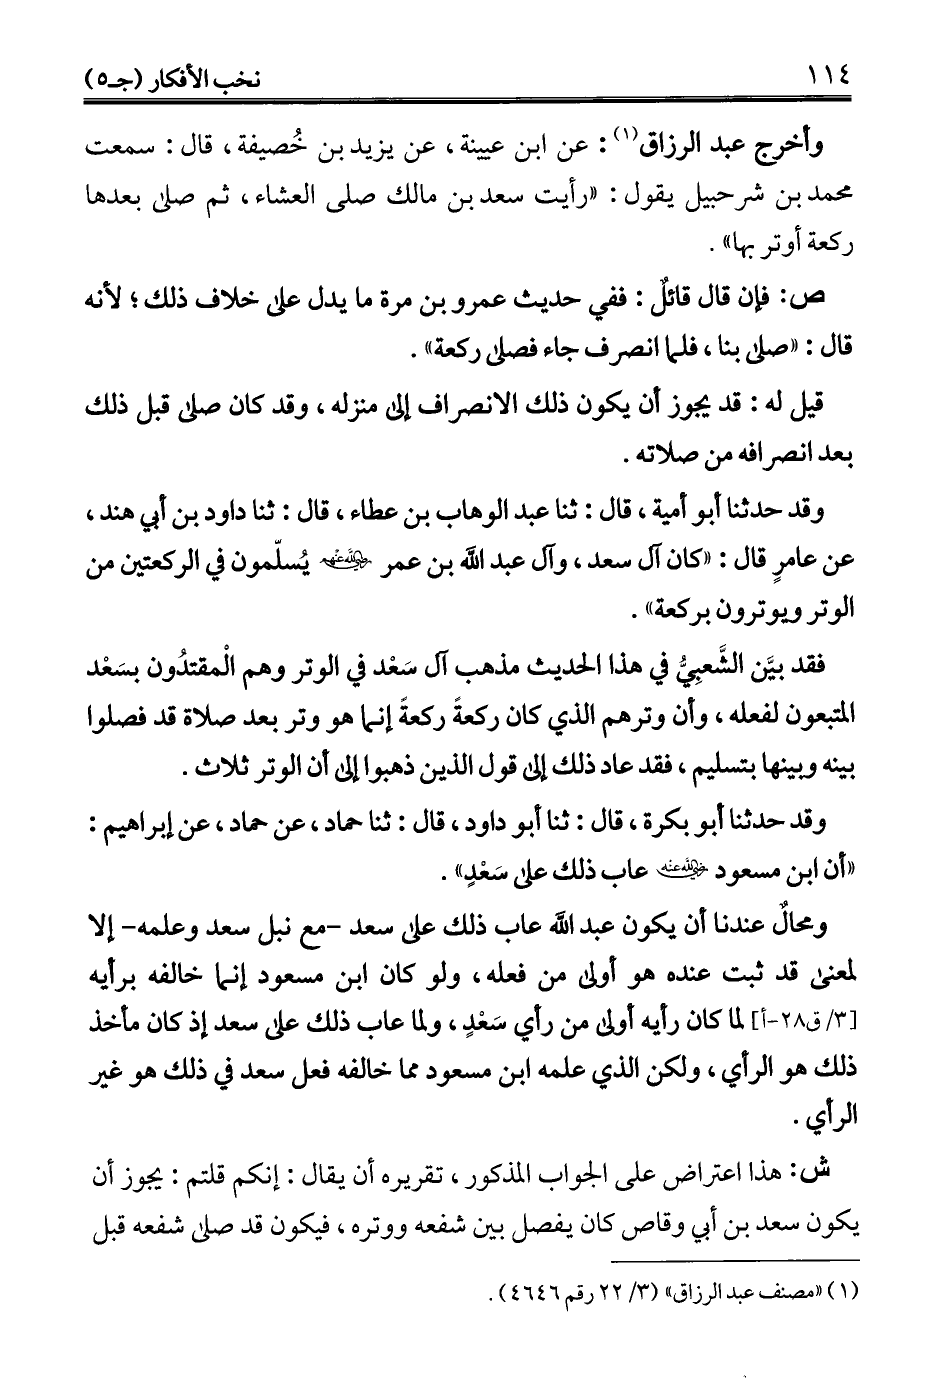 ١١٤ نخب الأفكار (جـ٥)
وأخرج عبد الرزاق(١) : عن ابن عيينة ، عن يزيد بن خُصيفة ، قال : سمعت
محمد بن شرحبيل يقول : «رأيت سعد بن مالك صلى العشاء ، ثم صلى بعدها
ركعة أوتر بها» .
ص: فإن قال قائلٌ : ففي حديث عمرو بن مرة ما يدل على خلاف ذلك ؛ لأنه
قال : «صلى بنا ، فلما انصرف جاء فصلى ركعة» .
قيل له : قد يجوز أن يكون ذلك الانصراف إلى منزله ، وقد كان صلى قبل ذلك
بعد انصرافه من صلاته .
وقد حدثنا أبو أمية ، قال : ثنا عبد الوهاب بن عطاء ، قال : ثنا داود بن أبي هند ،
عن عامرٍ قال : «كان آل سعد ، وآل عبد الله بن عمر رضي الله عنهم يُسلّمون في الركعتين من
الوتر ويوترون بركعة» .
فقد بيَّن الشَّعبِيُّ في هذا الحديث مذهب آل سَعْد في الوتر وهم الْمقتدُون بسَعْد
المتبعون لفعله ، وأن وترهم الذي كان ركعةً ركعةً إنما هو وتر بعد صلاة قد فصلوا
بينه وبينها بتسليم ، فقد عاد ذلك إلى قول الذين ذهبوا إلى أن الوتر ثلاث .
وقد حدثنا أبو بكرة ، قال : ثنا أبو داود ، قال : ثنا حماد ، عن حماد ، عن إبراهيم :
«أن ابن مسعود رضي الله عنه عاب ذلك على سَعْدٍ» .
ومحالٌ عندنا أن يكون عبد الله عاب ذلك على سعد -مع نبل سعد وعلمه- إلا
لمعنى قد ثبت عنده هو أولى من فعله ، ولو كان ابن مسعود إنما خالفه برأيه
[٣/ ق٢٨-أ] لما كان رأيه أولى من رأي سَعْدٍ ، ولما عاب ذلك على سعد إذ كان مأخذ
ذلك هو الرأي ، ولكن الذي علمه ابن مسعود مما خالفه فعل سعد في ذلك هو غير
الرأي .
ش: هذا اعتراض على الجواب المذكور ، تقريره أن يقال : إنكم قلتم : يجوز أن
يكون سعد بن أبي وقاص كان يفصل بين شفعه ووتره ، فيكون قد صلى شفعه قبل
(١) «مصنف عبد الرزاق» (٣/ ٢٢ رقم ٤٦٤٦) .